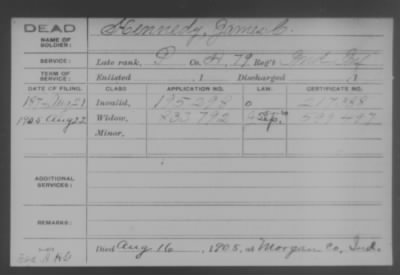 DEAD
NAME OF SOLDIER: Kennedy, James C.
SERVICE: Late rank, P Co. H, 79 Reg't Ind Inf
TERM OF SERVICE: Enlisted , 1 Discharged , 1
DATE OF FILING. CLASS. APPLICATION NO. LAW. CERTIFICATE NO.
187 Aug 21 Invalid, 195,298 217,388
1905 Aug 22 Widow, 833,792 599,497
Minor,
ADDITIONAL SERVICES:
REMARKS:
Died Aug 16, 1905, at Morgan Co, Ind.